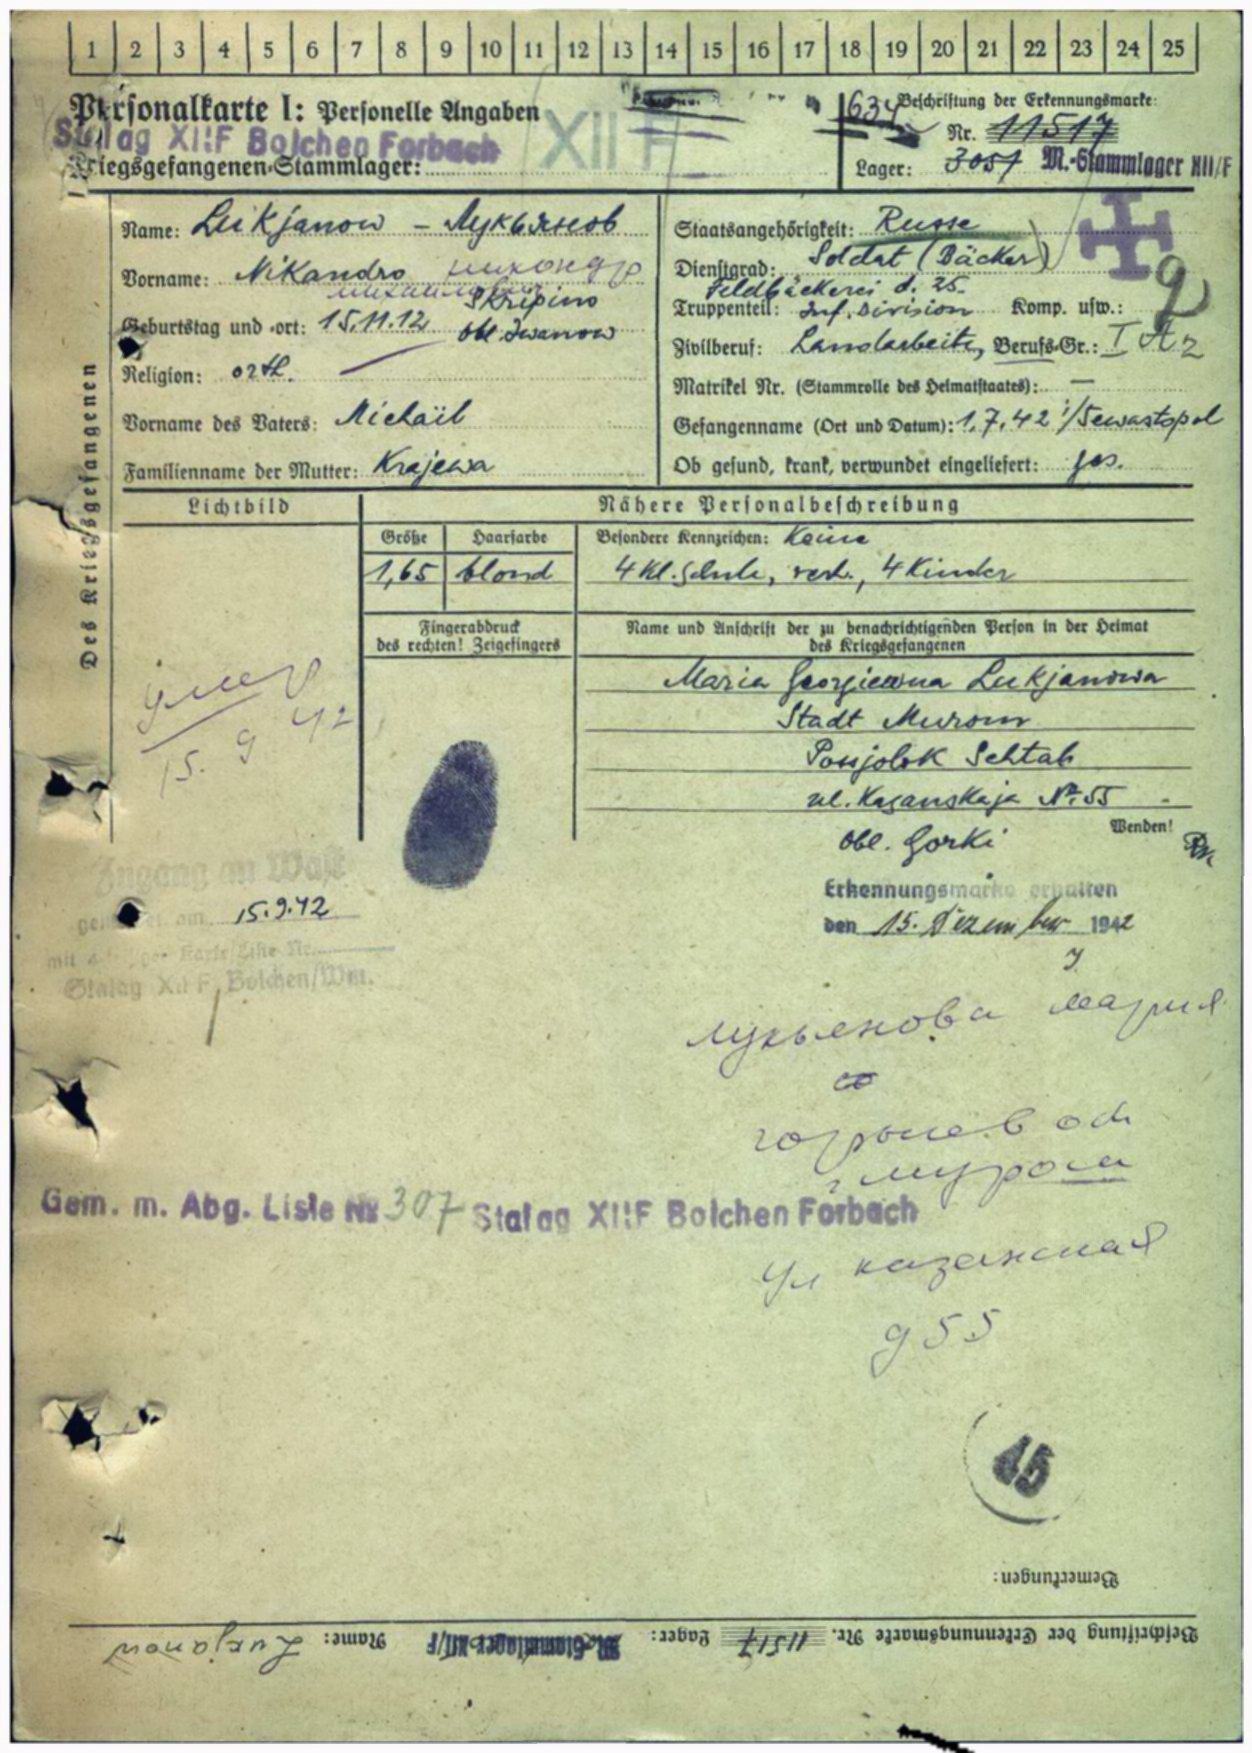 1 2 3 4 5 6 7 8 9 10 11 12 13 14 15 16 17 18 19 20 21 22 23 24 25
Personalkarte I: Personelle Angaben
Stalag XIIF Bolchen Forbach
XII F
Kriegsgefangenen-Stammlager:
Beschriftung der Erkennungsmarke:
634
Nr. 11517
Lager: 3057 M.-Stammlager XII/F
Des Kriegsgefangenen
Name: Lukjanow – Лукьянов
Vorname: Nikandro никондр
михайлович
Skripino
Geburtstag und -ort: 15.11.12 obl. Iwanow
Religion: orth.
Vorname des Vaters: Michaïl
Familienname der Mutter: Krajewa
Staatsangehörigkeit: Russe
Dienstgrad: Soldat (Bäcker)
Feldbäckerei d. 25.
Truppenteil: Inf. Division Komp. usw.:
Zivilberuf: Landarbeiter, Berufs-Gr.: I A2
Matrikel Nr. (Stammrolle des Heimatstaates): —
Gefangenname (Ort und Datum): 1.7.42 i/Sewastopol
Ob gesund, krank, verwundet eingeliefert: ges.
Lichtbild
Nähere Personalbeschreibung
Größe Haarfarbe
1,65 blond
Besondere Kennzeichen: Keine
4 Kl. Schule, verh., 4 Kinder
Fingerabdruck
des rechten! Zeigefingers
Name und Anschrift der zu benachrichtigenden Person in der Heimat
des Kriegsgefangenen
Maria Georgiewna Lukjanowa
Stadt Murom
Possjolok Schtab
ul. Kasanskaja №. 55
obl. Gorki
Wenden!
умер
15. 9 42
Zugang an Wast
gemeldet am 15.9.42
Karte/Liste Nr.
Stalag XII F, Bolchen/Wm.
Erkennungsmarke erhalten
den 15. Dezember 1942
лукьянова мария
г муром
Gem. m. Abg. Liste № 307 Stalag XIIF Bolchen Forbach
ул казанская
д 55
45
Bemerkungen:
Beschriftung der Erkennungsmarke Nr. 11517 Lager: M.-Stammlager XII/F Name: Lukjanow